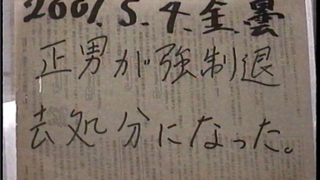 2001.5.4.金曇
正男が強制退
去処分になった。